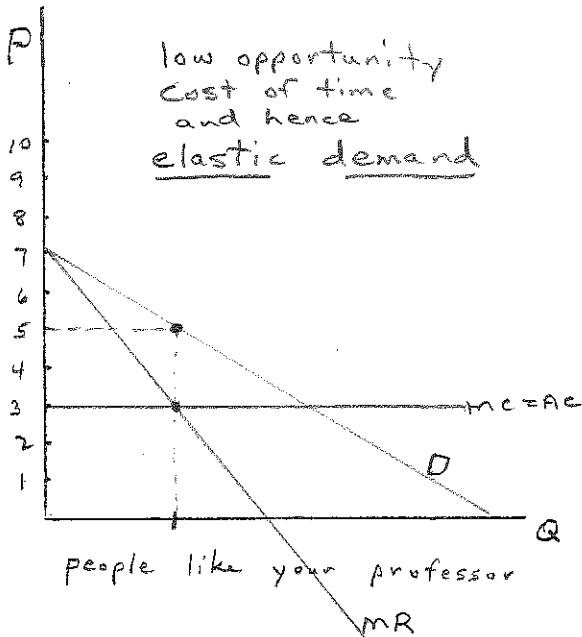 P
low opportunity
cost of time
and hence
elastic demand
10
9
8
7
6
5
4
3
2
1
MC = AC
D
Q
people like your professor
MR